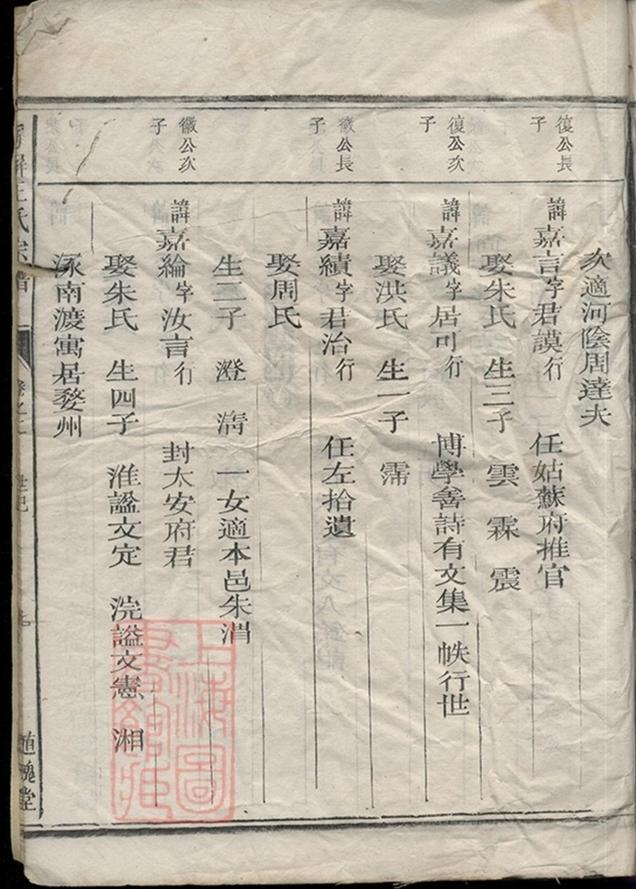 次適河陰周達夫
復公長子
諱嘉言字君謨行 任姑蘇府推官
娶朱氏 生三子 雲 霖 震
復公次子
諱嘉議字居可行 博學善詩有文集一帙行世
娶洪氏 生一子 霈
徽公長子
諱嘉績字君治行 任左拾遺
娶周氏
生二子 澄 清 一女適本邑朱渭
徽公次子
諱嘉綸字汝言行 封太安府君
娶朱氏 生四子 淮謚文定 浣謚文憲 湘
涿南渡寓居婺州
王氏宗譜 卷之二 世紀